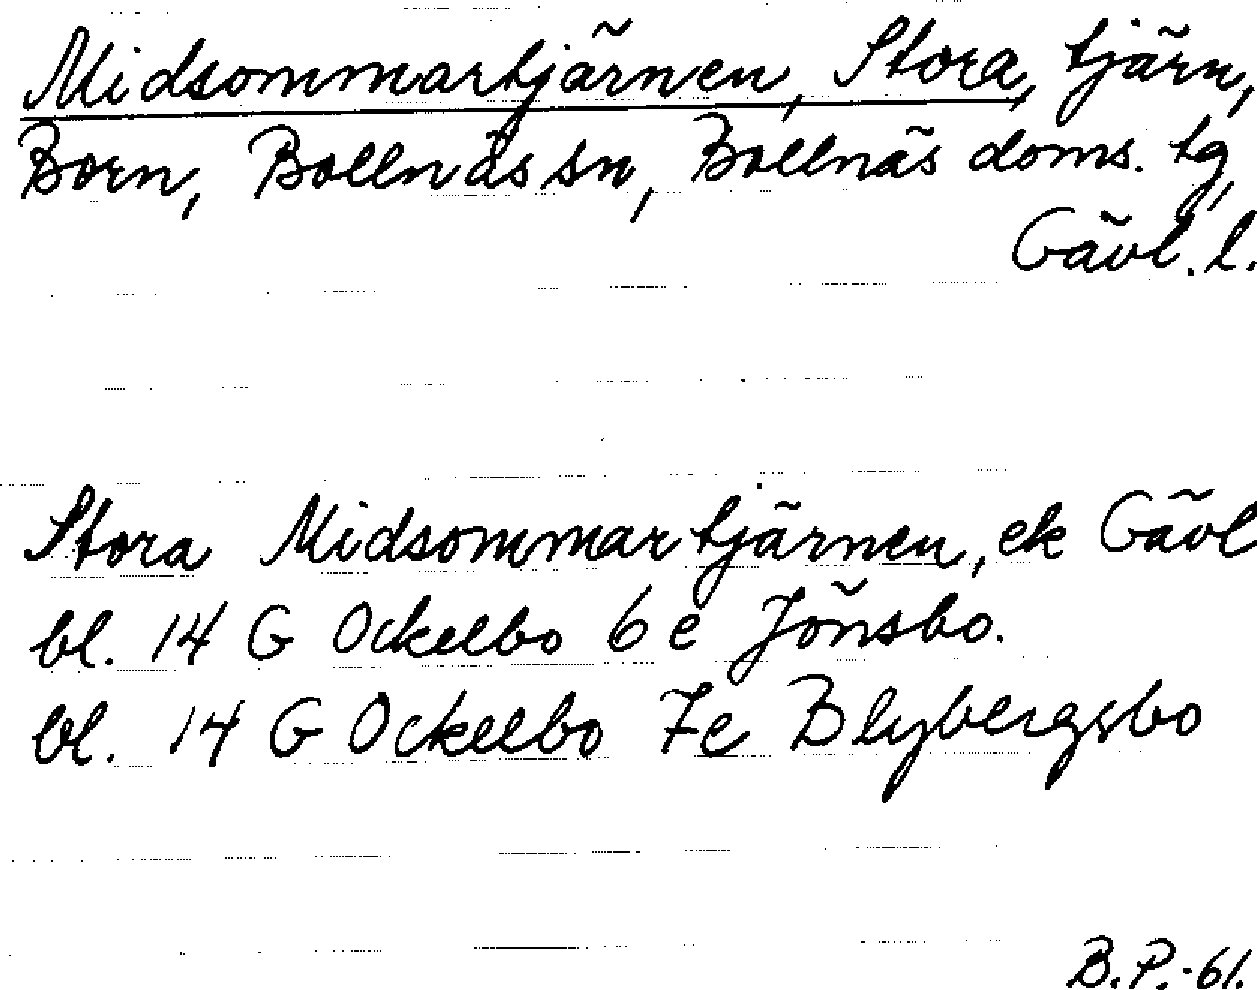 Midsommartjärnen, Stora, tjärn,
Born, Bollnäs sn, Bollnäs doms. tg,
Gävl. l.
Stora Midsommartjärnen, ek Gävl
bl. 14 G Ockelbo 6 e Jönsbo.
bl. 14 G Ockelbo 7e Blybergsbo
B.P.-61.